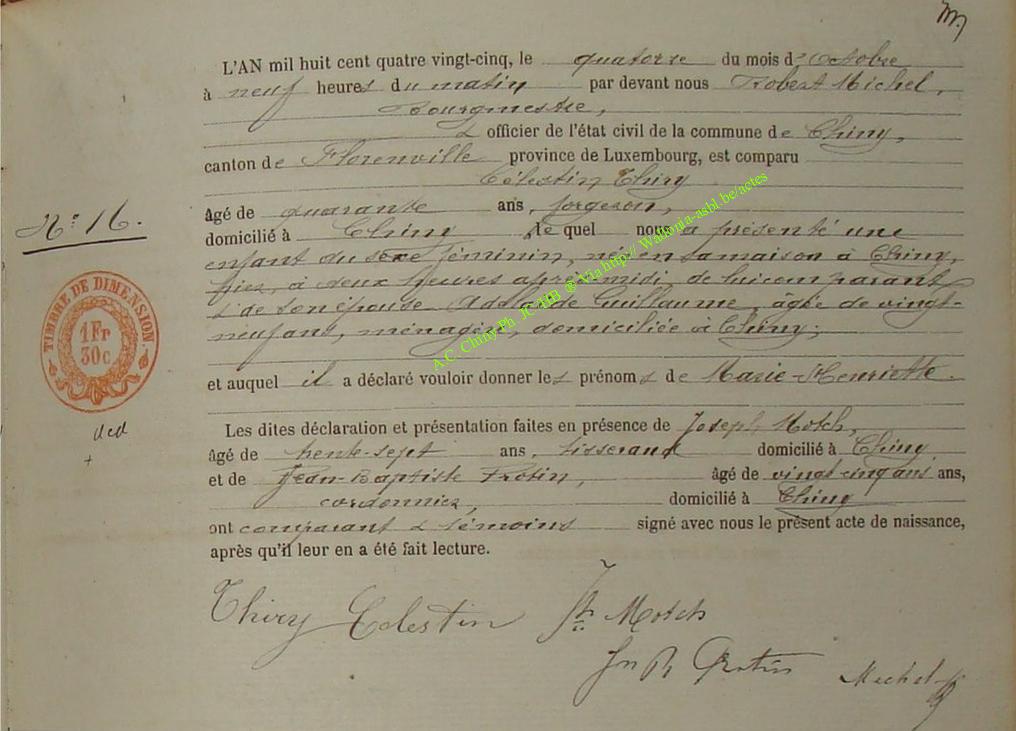 L'AN mil huit cent quatre vingt-cinq, le quatorze du mois d'Octobre
à neuf heures du matin par devant nous Robert Michel,
Bourgmestre,
& officier de l'état civil de la commune de Chiny,
canton de Florenville province de Luxembourg, est comparu
Célestin Thiry
âgé de quarante ans, forgeron,
N° 16.
domicilié à Chiny le quel nous a présenté une
enfant du sexe féminin, née en sa maison à Chiny,
hier, à deux heures après midi, de lui comparant
& de son épouse Adélaïde Guillaume, âgée de vingt-
neuf ans, ménagère, domiciliée à Chiny;
TIMBRE DE DIMENSION.
1 Fr
30 c
et auquel il a déclaré vouloir donner les prénoms de Marie-Henriette.
Les dites déclaration et présentation faites en présence de Joseph Motch,
âgé de trente-sept ans, tisserand domicilié à Chiny
et de Jean-Baptiste Protin, âgé de vingt-cinq ans ans,
cordonnier, domicilié à Chiny
ont comparant & témoins signé avec nous le présent acte de naissance,
après qu'il leur en a été fait lecture.
Thiry Celestin Jh Motch
Jn B Protin Michel
A.C. Chiny Ph JC HB ® Via http:// Wallonia-asbl.be/actes